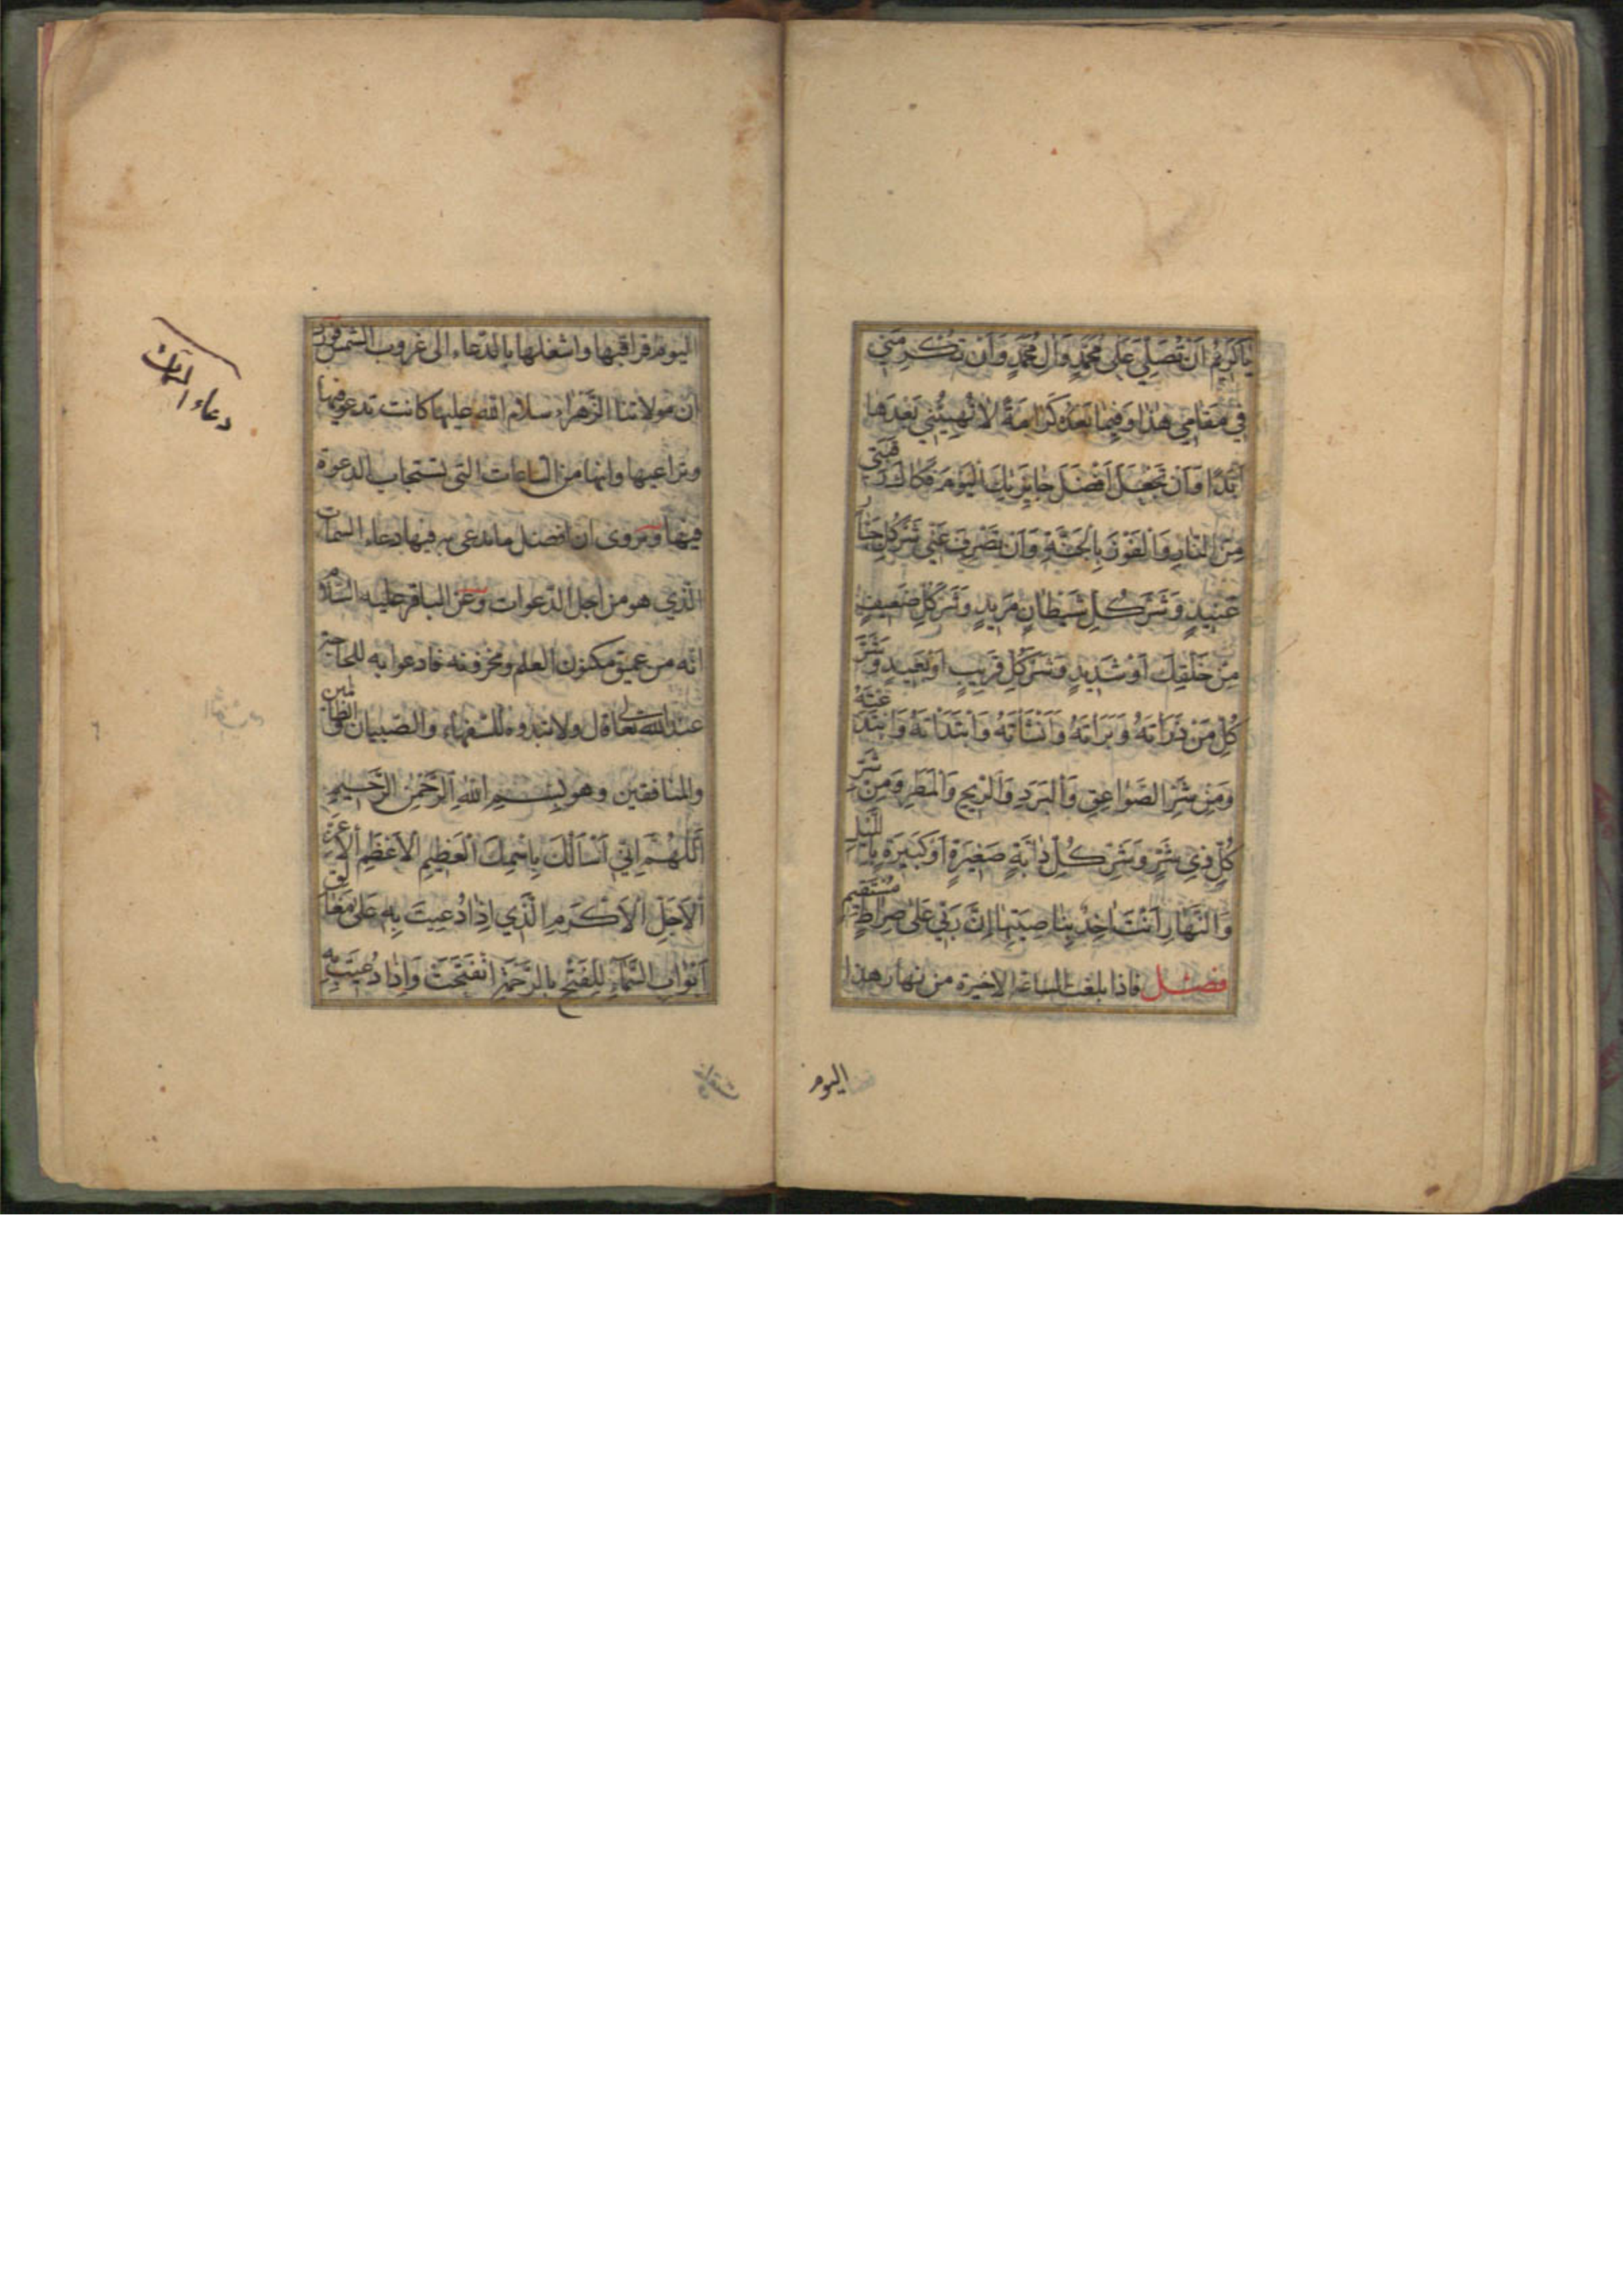 يَا كَرِيمُ اَنْ تُصَلِّيَ عَلىٰ مُحَمَّدٍ وَاٰلِ مُحَمَّدٍ وَاَنْ تُكْرِمَنِي
فِي مَقَامِي هٰذَا وَفِيمَا بَعْدَهُ كَرَامَةً لَا تُهِينُنِي بَعْدَهَا
اَبَدًا وَاَنْ تَجْعَلَ اَفْضَلَ جَائِزَتِكَ الْيَوْمَ فَكَاكَ رَقَبَتِي
مِنَ النَّارِ وَالْفَوْزَ بِالْجَنَّةِ وَاَنْ تَصْرِفَ عَنِّي شَرَّ كُلِّ جَبَّارٍ
عَنِيدٍ وَشَرَّ كُلِّ شَيْطَانٍ مَرِيدٍ وَشَرَّ كُلِّ ضَعِيفٍ
مِنْ خَلْقِكَ اَوْ شَدِيدٍ وَشَرَّ كُلِّ قَرِيبٍ اَوْ بَعِيدٍ وَشَرَّ
كُلِّ مَنْ ذَرَاْتَهُ وَبَرَاْتَهُ وَاَنْشَاْتَهُ وَابْتَدَاْتَهُ وَابْتَدَعْتَهُ
وَمِنْ شَرِّ الصَّوَاعِقِ وَالْبَرَدِ وَالرِّيحِ وَالْمَطَرِ وَمِنْ شَرِّ
كُلِّ ذِي شَرٍّ وَشَرِّ كُلِّ دَابَّةٍ صَغِيرَةٍ اَوْ كَبِيرَةٍ بِاللَّيْلِ
وَالنَّهَارِ اَنْتَ اٰخِذٌ بِنَاصِيَتِهَا اِنَّ رَبِّي عَلىٰ صِرَاطٍ مُسْتَقِيمٍ
فصل فاذا بلغت الساعة الاخيرة من نهار هذا
اليوم
اليوم فراقبها واشغلها بالدعاء الى غروب الشمس فورد
ان مولاتنا الزهراء سلام الله عليها كانت تدعو فيها
وتراعيها وانها من الساعات التي تستجاب الدعوة
فيها وروى ان افضل ما تدعى به فيها دعاء السمات
الذي هو من اجل الدعوات وعن الباقر عليه السّلام
انه من عميق مكنون العلم ومخزونه فادعوا به للحاجة
عند الله تعالى قال ولا تبدوه للسفهاء والصبيان والظالمين
والمنافقين وهو بِسْمِ اللهِ الرَّحْمٰنِ الرَّحِيمِ
اَللّٰهُمَّ اِنِّي اَسْاَلُكَ بِاسْمِكَ الْعَظِيمِ الْاَعْظَمِ الْاَعَزِّ
الْاَجَلِّ الْاَكْرَمِ الَّذِي اِذَا دُعِيتَ بِهِ عَلىٰ مَغَالِقِ
اَبْوَابِ السَّمَاءِ لِلْفَتْحِ بِالرَّحْمَةِ انْفَتَحَتْ وَاِذَا دُعِيتَ بِهِ
دعاء السمات